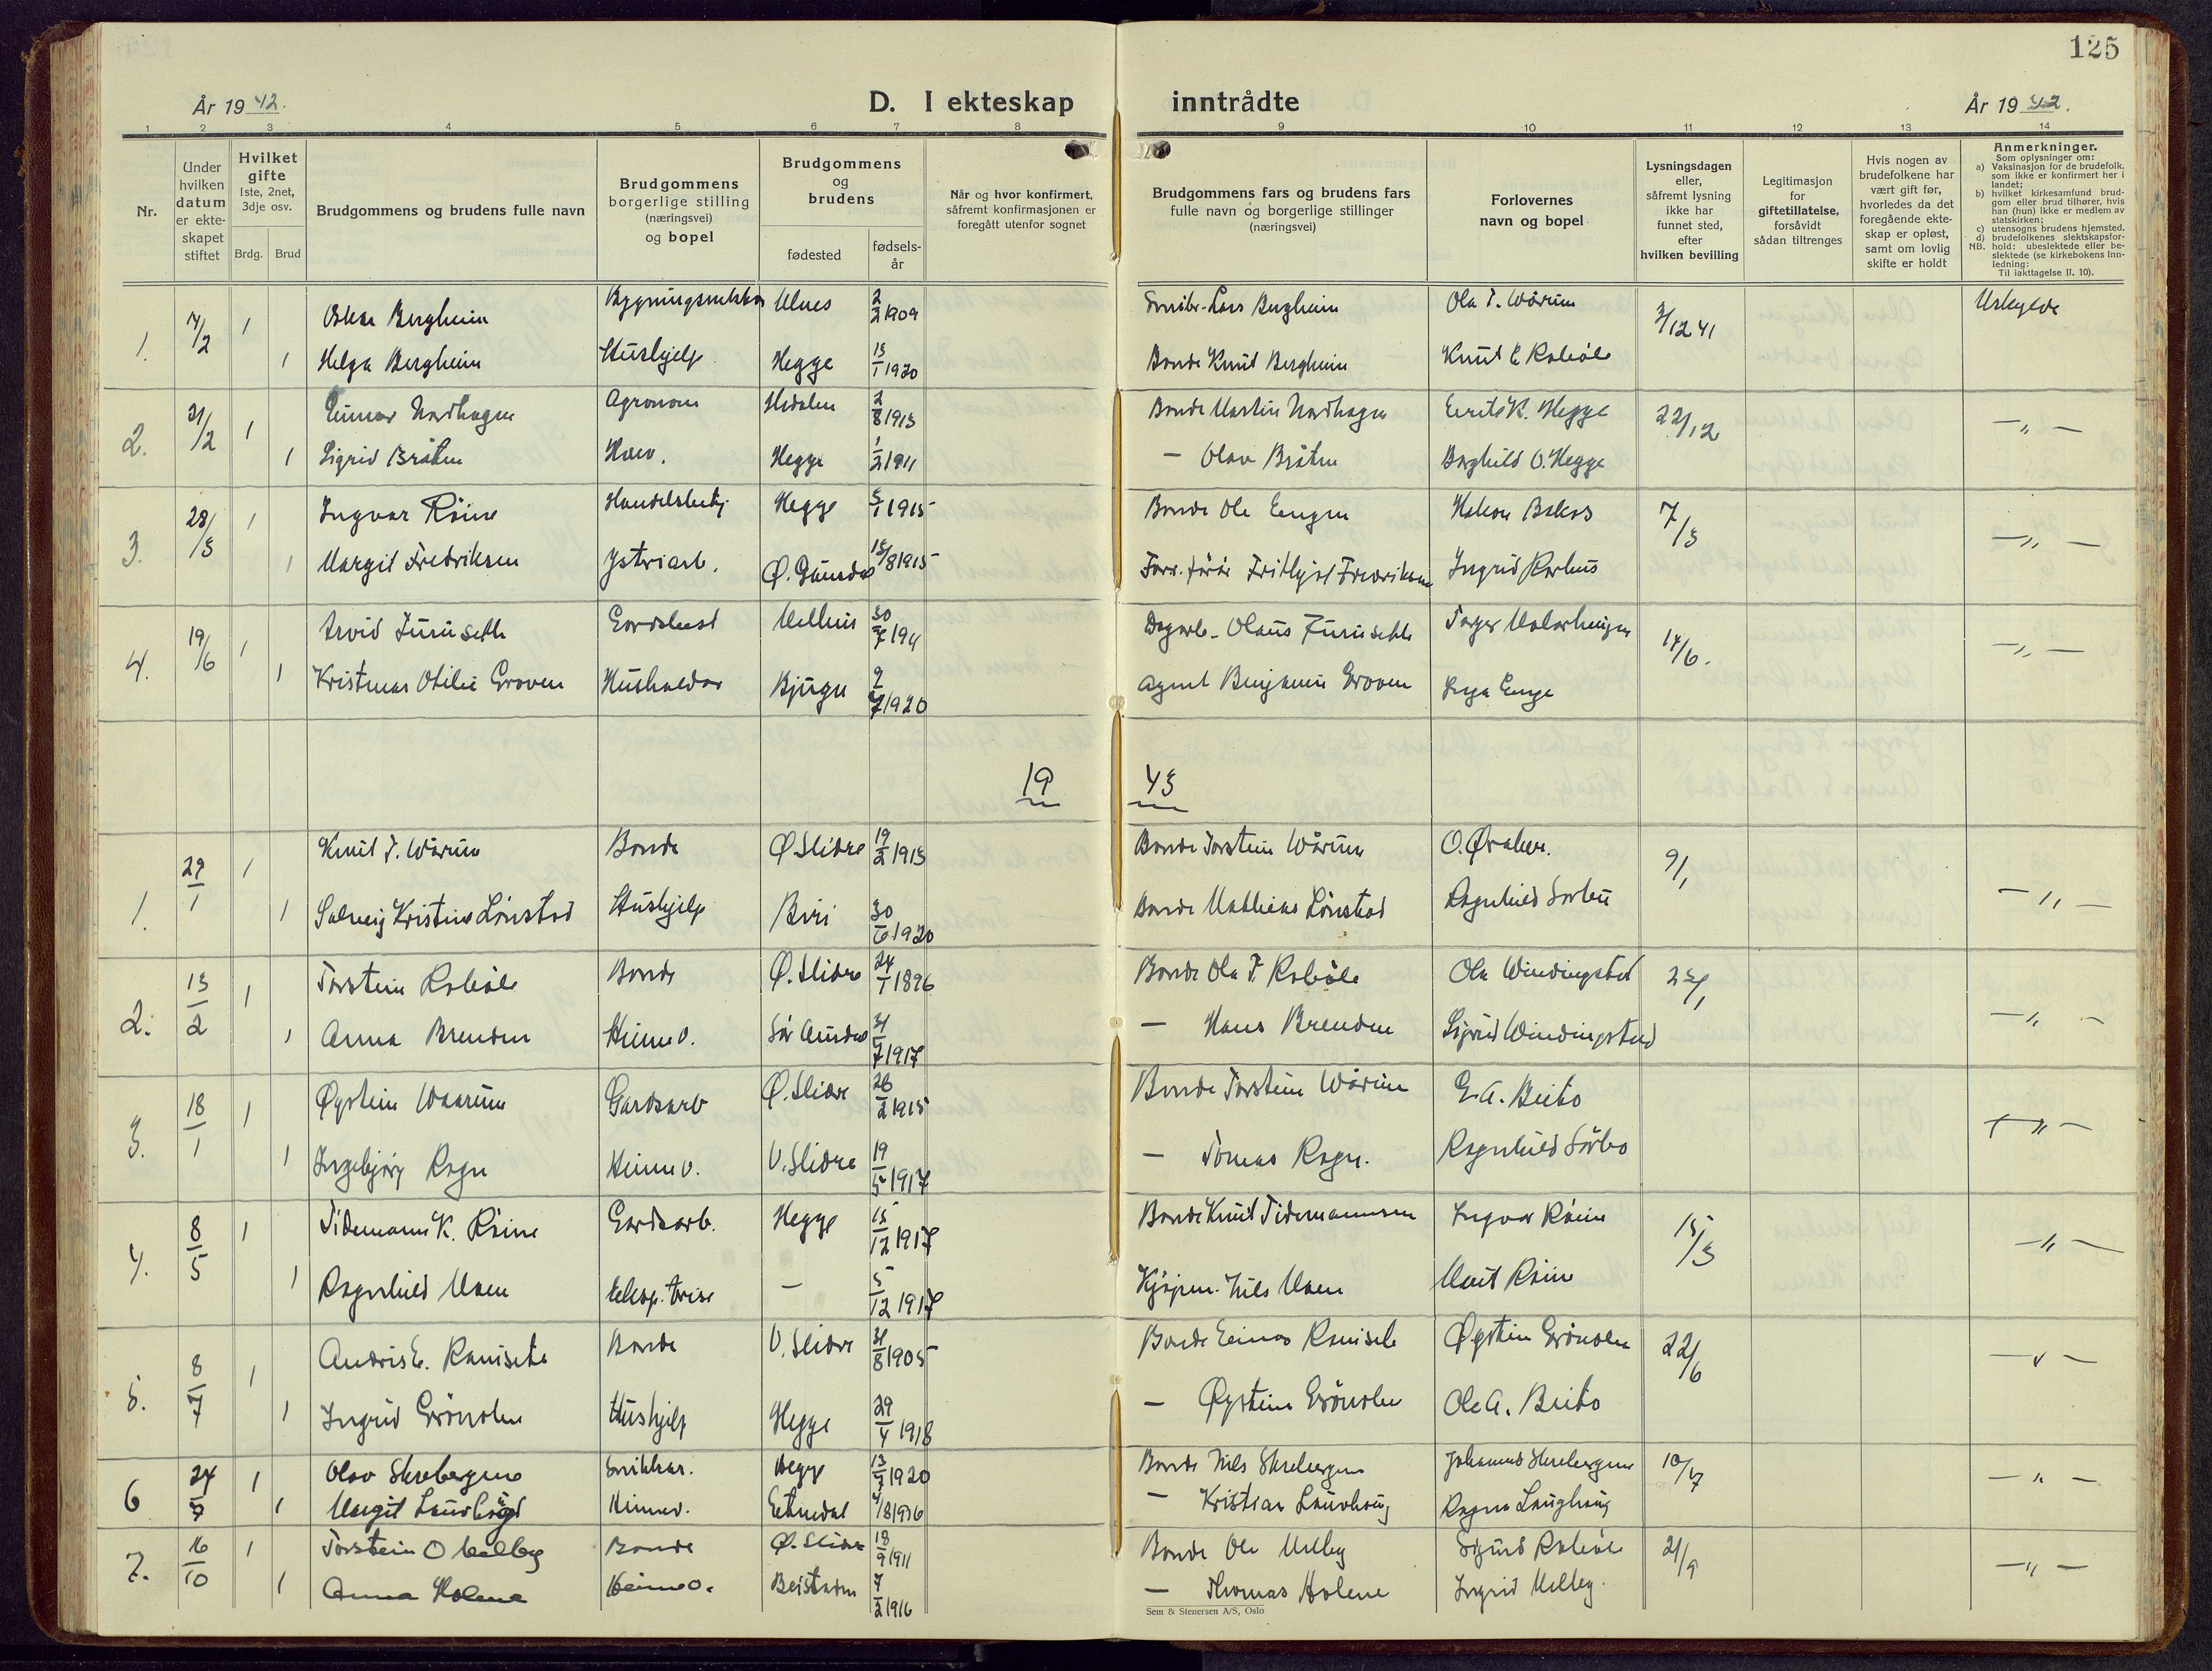 125
År 1942.
D. I ekteskap inntrådte
År 1942.
1 2 3 4 5 6 7 8 9 10 11 12 13 14
Nr.
Under hvilken datum er ekteskapet stiftet
Hvilket gifte 1ste, 2net, 3dje osv.
Brdg. Brud
Brudgommens og brudens fulle navn
Brudgommens borgerlige stilling (næringsvei) og bopel
Brudgommens og brudens
fødested
fødselsår
Når og hvor konfirmert, såfremt konfirmasjonen er foregått utenfor sognet
Brudgommens fars og brudens fars fulle navn og borgerlige stillinger (næringsvei)
Forlovernes navn og bopel
Lysningsdagen eller, såfremt lysning ikke har funnet sted, efter hvilken bevilling
Legitimasjon for giftetillatelse, forsåvidt sådan tiltrenges
Hvis nogen av brudefolkene har vært gift før, hvorledes da det foregående ekteskap er opløst, samt om lovlig skifte er holdt
Anmerkninger.
Som oplysninger om:
a) Vaksinasjon for de brudefolk. som ikke er konfirmert her i landet;
b) hvilket kirkesamfund brudgom eller brud tilhører, hvis han (hun) ikke er medlem av statskirken;
c) utensogns brudens hjemsted.
d) brudefolkenes slektskapsforhold: ubeslektede eller beslektede (se kirkebokens innledning:
NB. Til iakttagelse II. 10).
1. 14/2 1 Bergheim Ulnes 2/2 1909 Lars Bergheim Ola T. Wårum 3/12 41
1 Helga Bergheim Hushjelp Hegge 13/1 1920 Bonde Knut Bergheim Knut E Robøle
2. 21/2 1 Einar Nordhagen Agronom Hedalen 2/8 1913 Bonde Martin Nordhagen K. Hegge 22/12 — „ —
1 Sigrid Bråten Hegge 1/2 1911 — Olav Bråten Borghild O. Hegge
3. 28/3 1 Ingvar Røine Handelsbetj Hegge 5/1 1915 Bonde Ole Hakon 7/3 — „ —
1 Margit Fredriksen Ø. Gausdal 15/8 1915 Fritjof Fredriksen Ingrid
4. 19/6 1 Arvid Furuseth 30/7 Olaus Furuseth 14/6. — „ —
1 Otilie Groven Bjugn 9/7 1920 Agent Benjamin Groven Inga Enge
19 43
1. 29/1 1 Knut T. Wårum Bonde Ø Slidre 19/2 1913 Bonde Torstein Wårum O. Øraker. 9/1 — „ —
1 Solveig Kristine Lønstad Hushjelp Biri 30/6 1920 Bonde Mathias Lønstad Ragnhild Sørbu
2. 13/2 1 Torstein Robøle Bonde Ø. Slidre 24/1 1896 Bonde Ola T. Robøle Ola Windingstad — „ —
1 Anna Brenden Heimev. Sør Aurdal 31/7 1917 — Hans Brenden Sigrid Windingstad
3. 18/1 1 Øystein Waarum Gardsarb Ø. Slidre 26/2 1915 Bonde Torstein Wårum E. A. Beito — „ —
1 Ingebjørg Rogn Heimev. V. Slidre 19/5 1917 — Tomas Rogn. Ragnhild Sørbo
4. 8/5 1 Tidemann K. Røine Gardsarb. Hegge 15/12 1917 Bonde Knut Tidemannsen Ingvar Røine 15/3 — „ —
1 Ragnhild Moen — 5/12 1917 Kjøpm. Nils Moen Marit Røine
5. 8/7 1 Andris E. Raniseth Bonde V. Slidre 31/8 1905 Bonde Einar Raniseth Øystein Grönolen 22/6 — „ —
1 Ingrid Grönolen Hushjelp Hegge 29/4 1918 — Øystein Grönolen Ole A. Beito
6 24/7 1 Olav Skrebergene Hegge 13/7 1920 Bonde Nils Skrebergene Johannes Skrebergene 10/7 — „ —
1 Margit Heimev. Etnedal — Kristian Ragna
7. 16/10 1 Torstein O Melby Bonde Ø. Slidre 18/9 1911 Bonde Ole Melby Sigurd Robøle 21/9 — „ —
1 Anna Holene Heimev. 7/2 1916 — Thomas Holene Ingrid Melby.
Sem & Stenersen A/S, Oslo